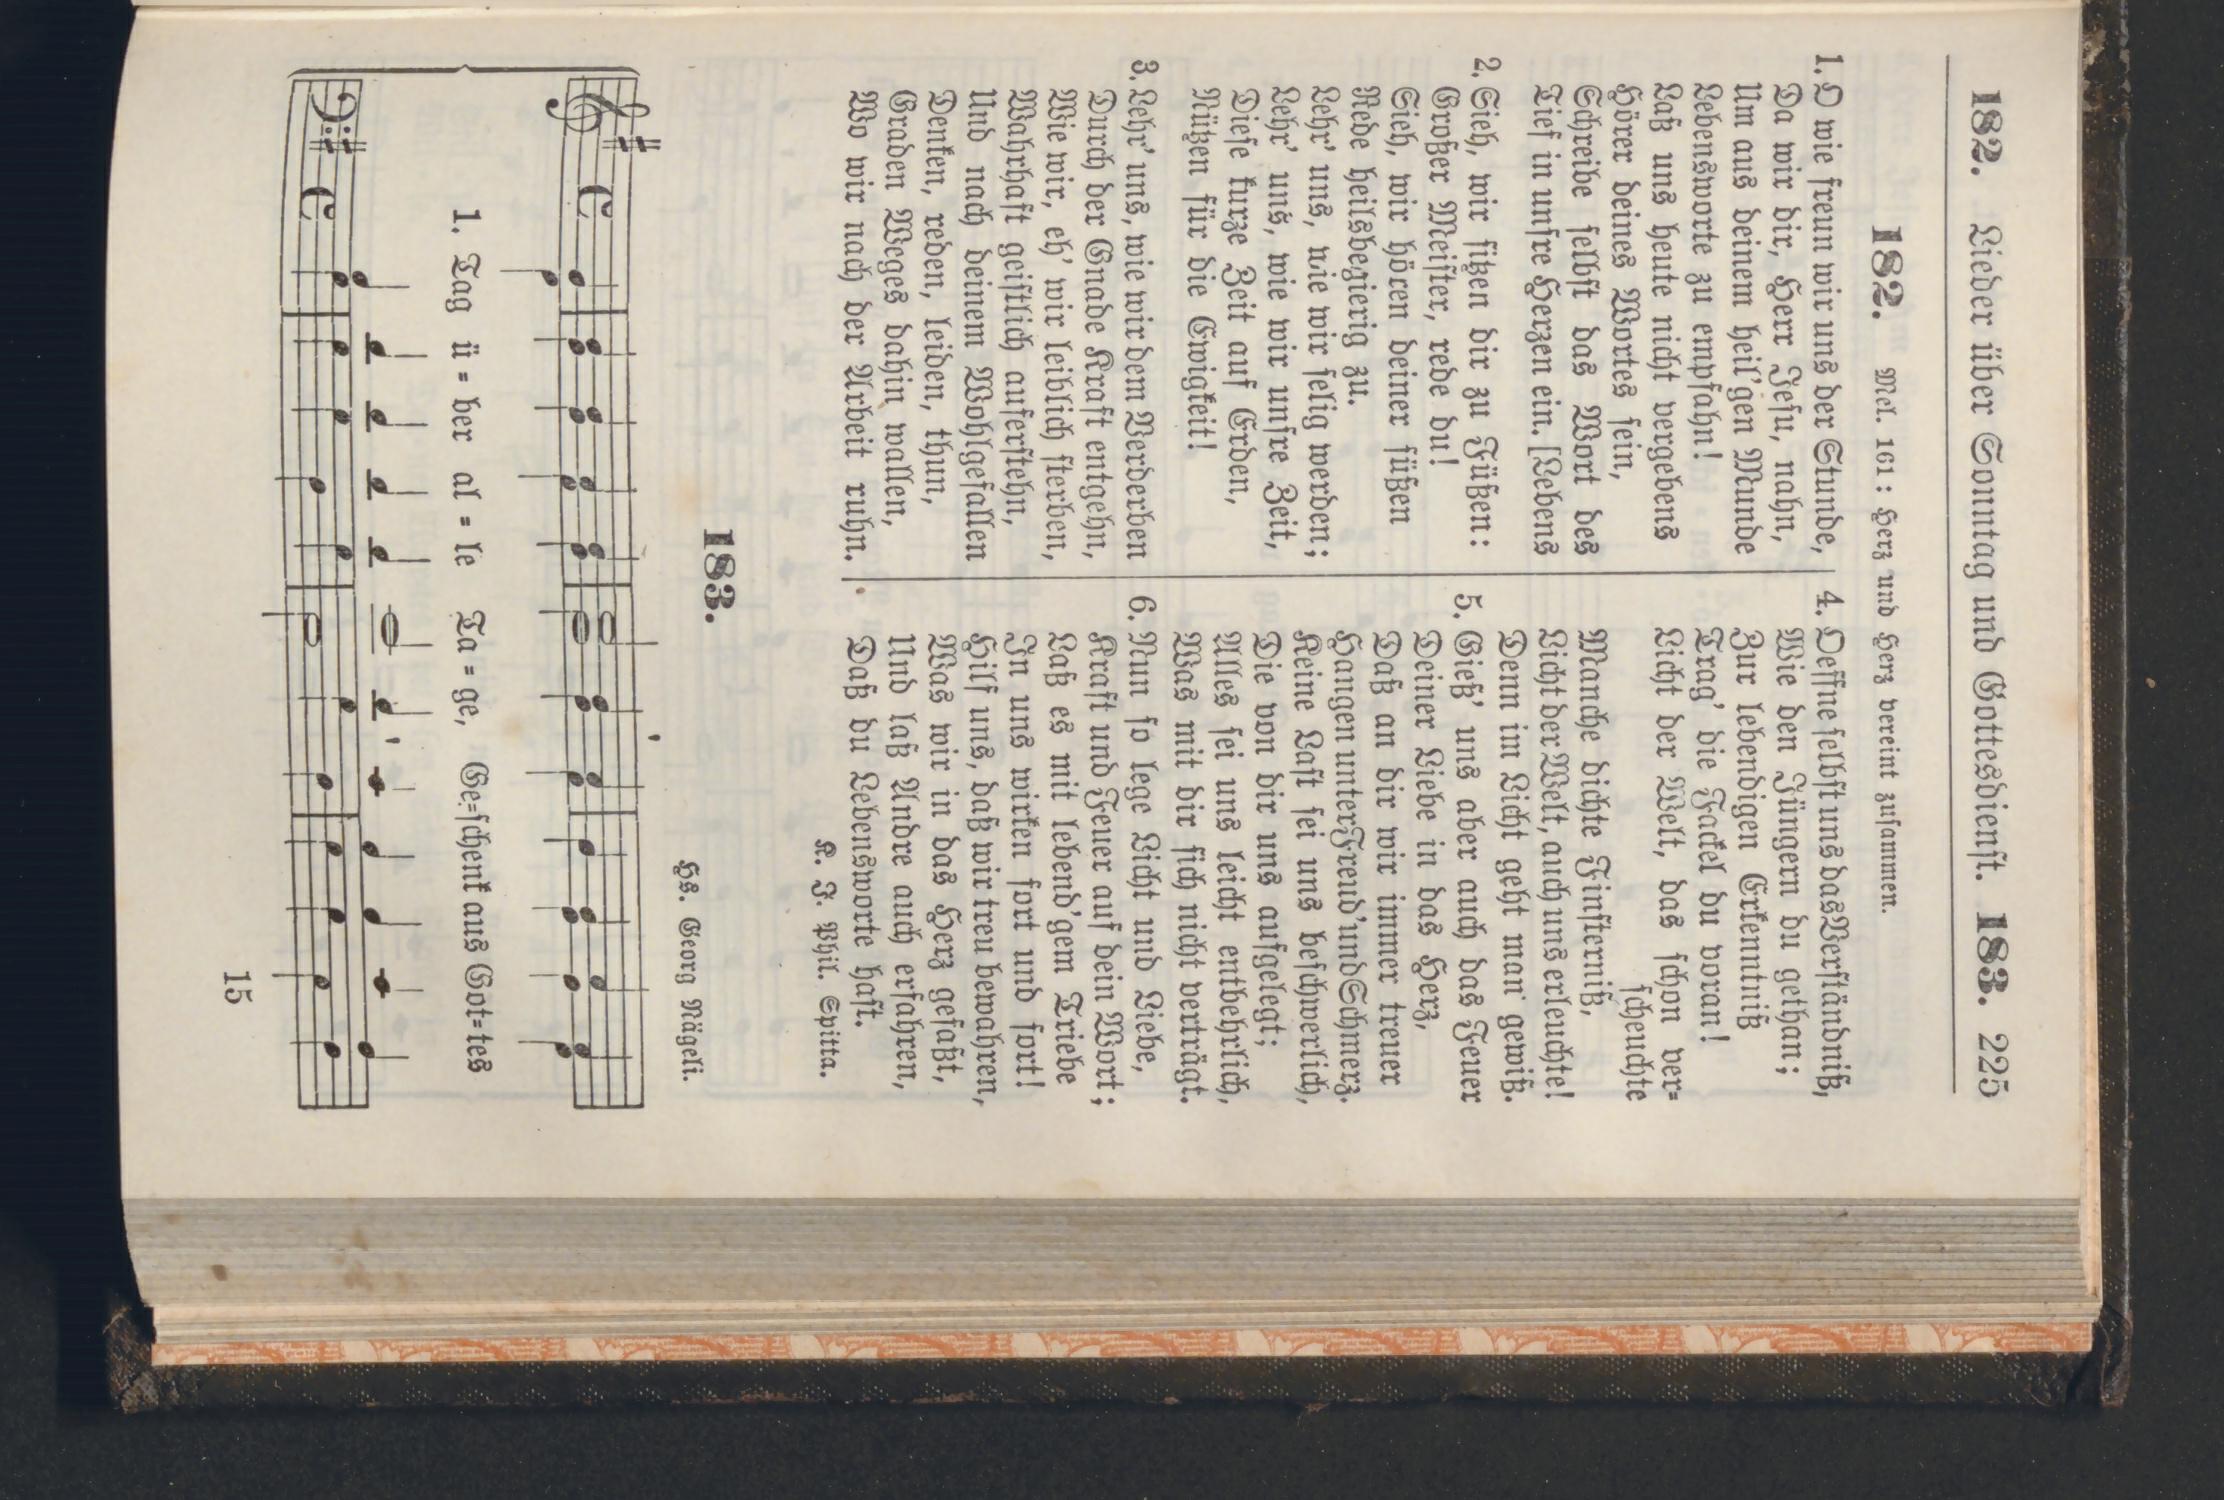 182. Lieder über Sonntag und Gottesdienst. 183. 225
182. Mel. 161: Herz und Herz vereint zusammen.
1. O wie freun wir uns der Stunde,
Da wir dir, Herr Jesu, nahn,
Um aus deinem heil'gen Munde
Lebensworte zu empfahn!
Laß uns heute nicht vergebens
Hörer deines Wortes sein,
Schreibe selbst das Wort des
Tief in unsre Herzen ein. [Lebens
2. Sieh, wir sitzen dir zu Füßen:
Großer Meister, rede du!
Sieh, wir hören deiner süßen
Rede heilsbegierig zu.
Lehr' uns, wie wir selig werden;
Lehr' uns, wie wir unsre Zeit,
Diese kurze Zeit auf Erden,
Nützen für die Ewigkeit!
3. Lehr' uns, wie wir dem Verderben
Durch der Gnade Kraft entgehn,
Wie wir, eh' wir leiblich sterben,
Wahrhaft geistlich auferstehn,
Und nach deinem Wohlgefallen
Denken, reden, leiden, thun,
Graden Weges dahin wallen,
Wo wir nach der Arbeit ruhn.
4. Oeffne selbst uns das Verständniß,
Wie den Jüngern du gethan;
Zur lebendigen Erkenntniß
Trag' die Fackel du voran!
Licht der Welt, das schon ver=
scheuchte
Manche dichte Finsterniß,
Licht der Welt, auch uns erleuchte!
Denn im Licht geht man gewiß.
5. Gieß' uns aber auch das Feuer
Deiner Liebe in das Herz,
Daß an dir wir immer treuer
Hangen unter Freud' und Schmerz.
Keine Last sei uns beschwerlich,
Die von dir uns aufgelegt;
Alles sei uns leicht entbehrlich,
Was mit dir sich nicht verträgt.
6. Nun so lege Licht und Liebe,
Kraft und Feuer auf dein Wort;
Laß es mit lebend'gem Triebe
In uns wirken fort und fort!
Hilf uns, daß wir treu bewahren,
Was wir in das Herz gefaßt,
Und laß Andre auch erfahren,
Daß du Lebensworte hast.
K. J. Phil. Spitta.
183.
Hs. Georg Nägeli.
1. Tag ü = ber al = le Ta = ge, Ge=schenk aus Got=tes
15